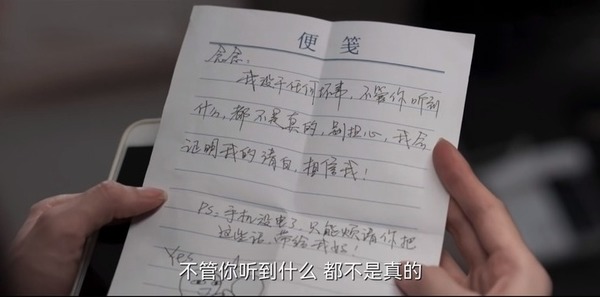 便笺
念念：
我没干任何坏事，不管你听到
什么，都不是真的，别担心，我会
证明我的清白，相信我！
PS：手机没电了，只能烦请你把
这些话，带给我
Yes
不管你听到什么 都不是真的